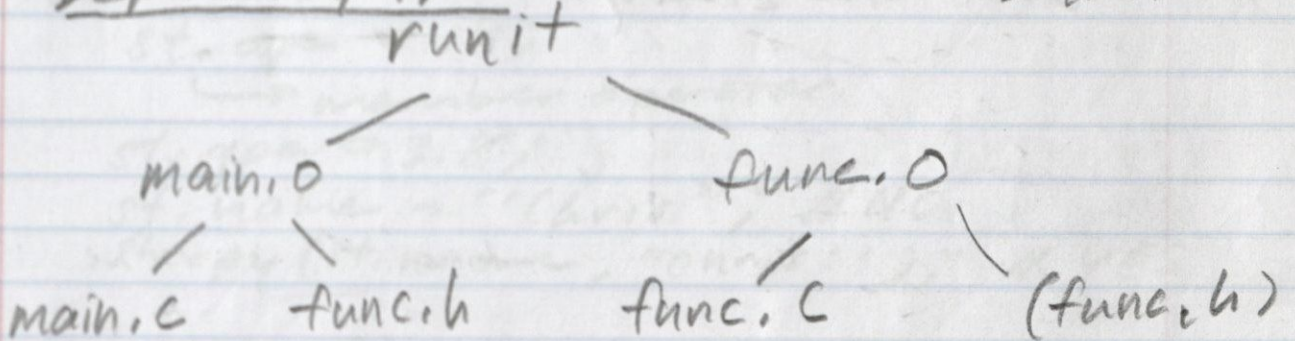 runit
main.o func.o
main.c func.h func.c (func.h)